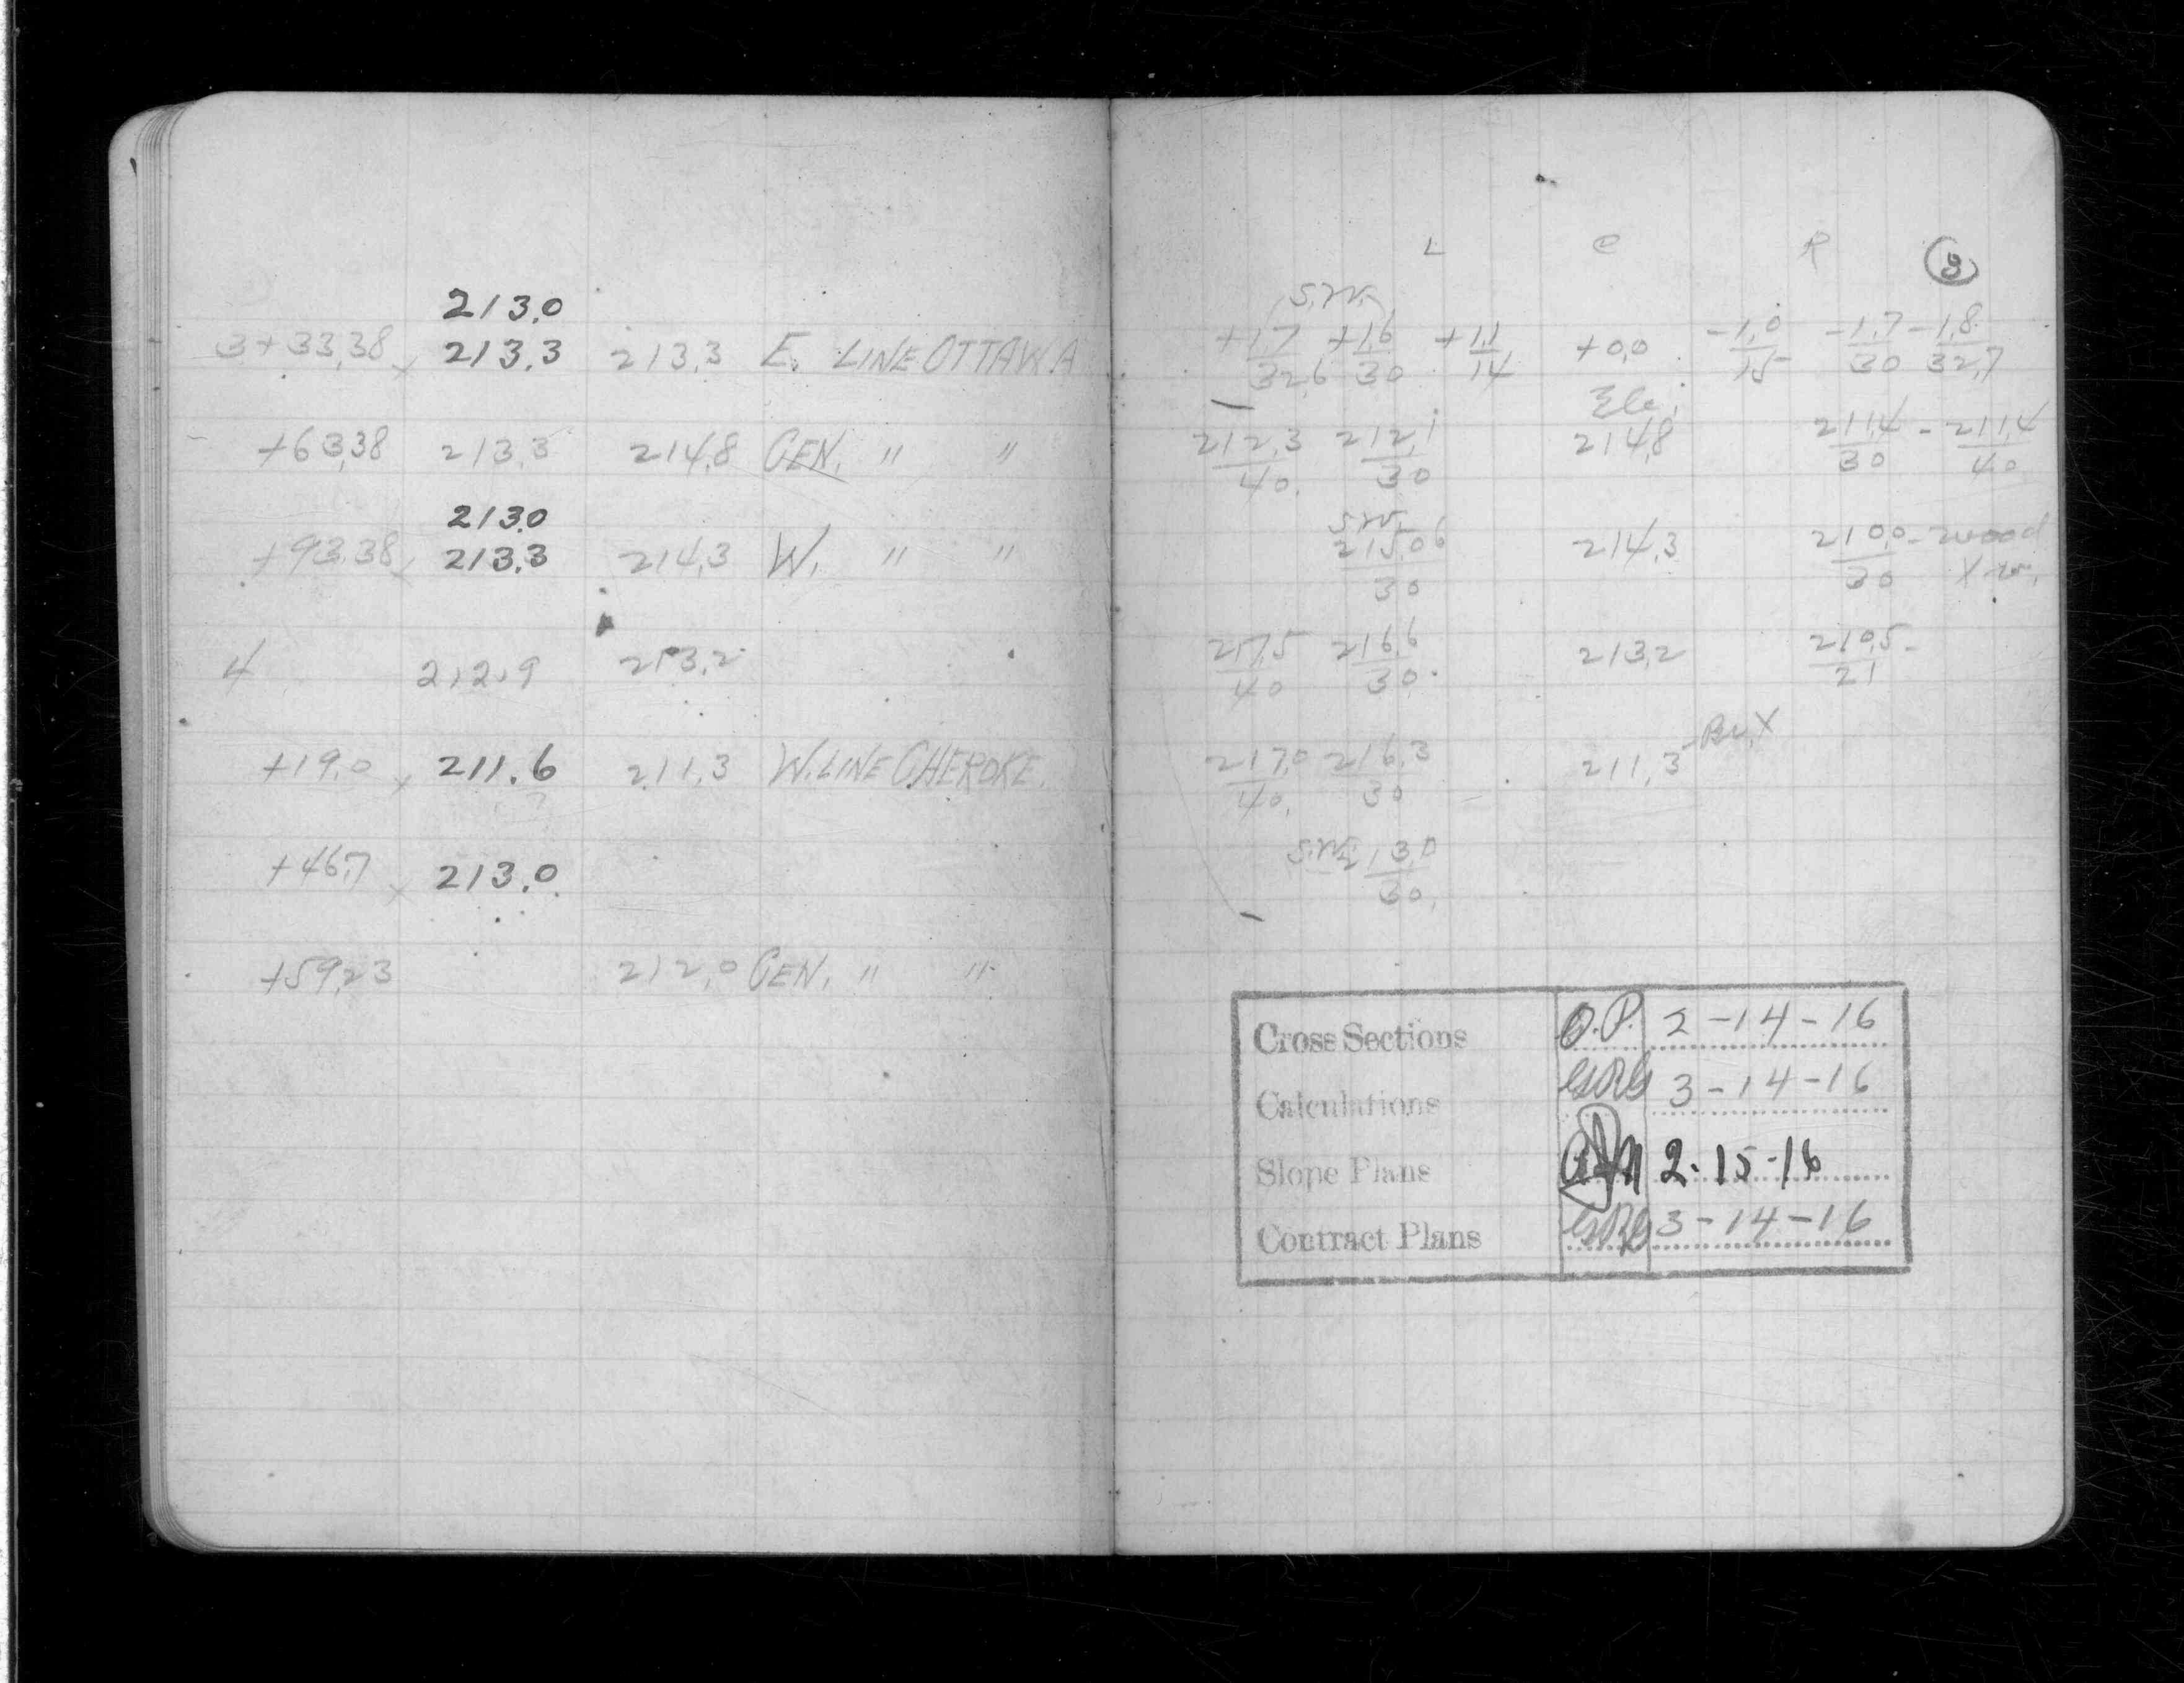 213.0
3+33.38 x 213.3 213.3 E. LINE OTTAWA
+63.38 213.3 214.8 CEN. " "
213.0
+93.38 x 213.3 214.3 W. " "
4 212.9 213.2
+19.0 x 211.6 211.3 W. LINE CHEROKE.
+46.7 x 213.0
+59.23 212.0 CEN. " "
L C R 3
S.W.
+1.7 +1.6 +1.1 +0.0 -1.0 -1.7 -1.8
32.6 30 14 15 30 32.7
Ele.
212.3 212.1 214.8 211.4 - 211.4
40. 30 30 40
S.W.
215.06 214.3 210.0 - wood
30 30 X-w.
217.5 216.6 213.2 210.5 -
40 30. 21
217.0 216.3 211.3 - Br. X
40. 30
S.W. 213.0
30.
Cross Sections O.P. 2-14-16
Calculations 3-14-16
Slope Plans 2-15-16
Contract Plans 3-14-16